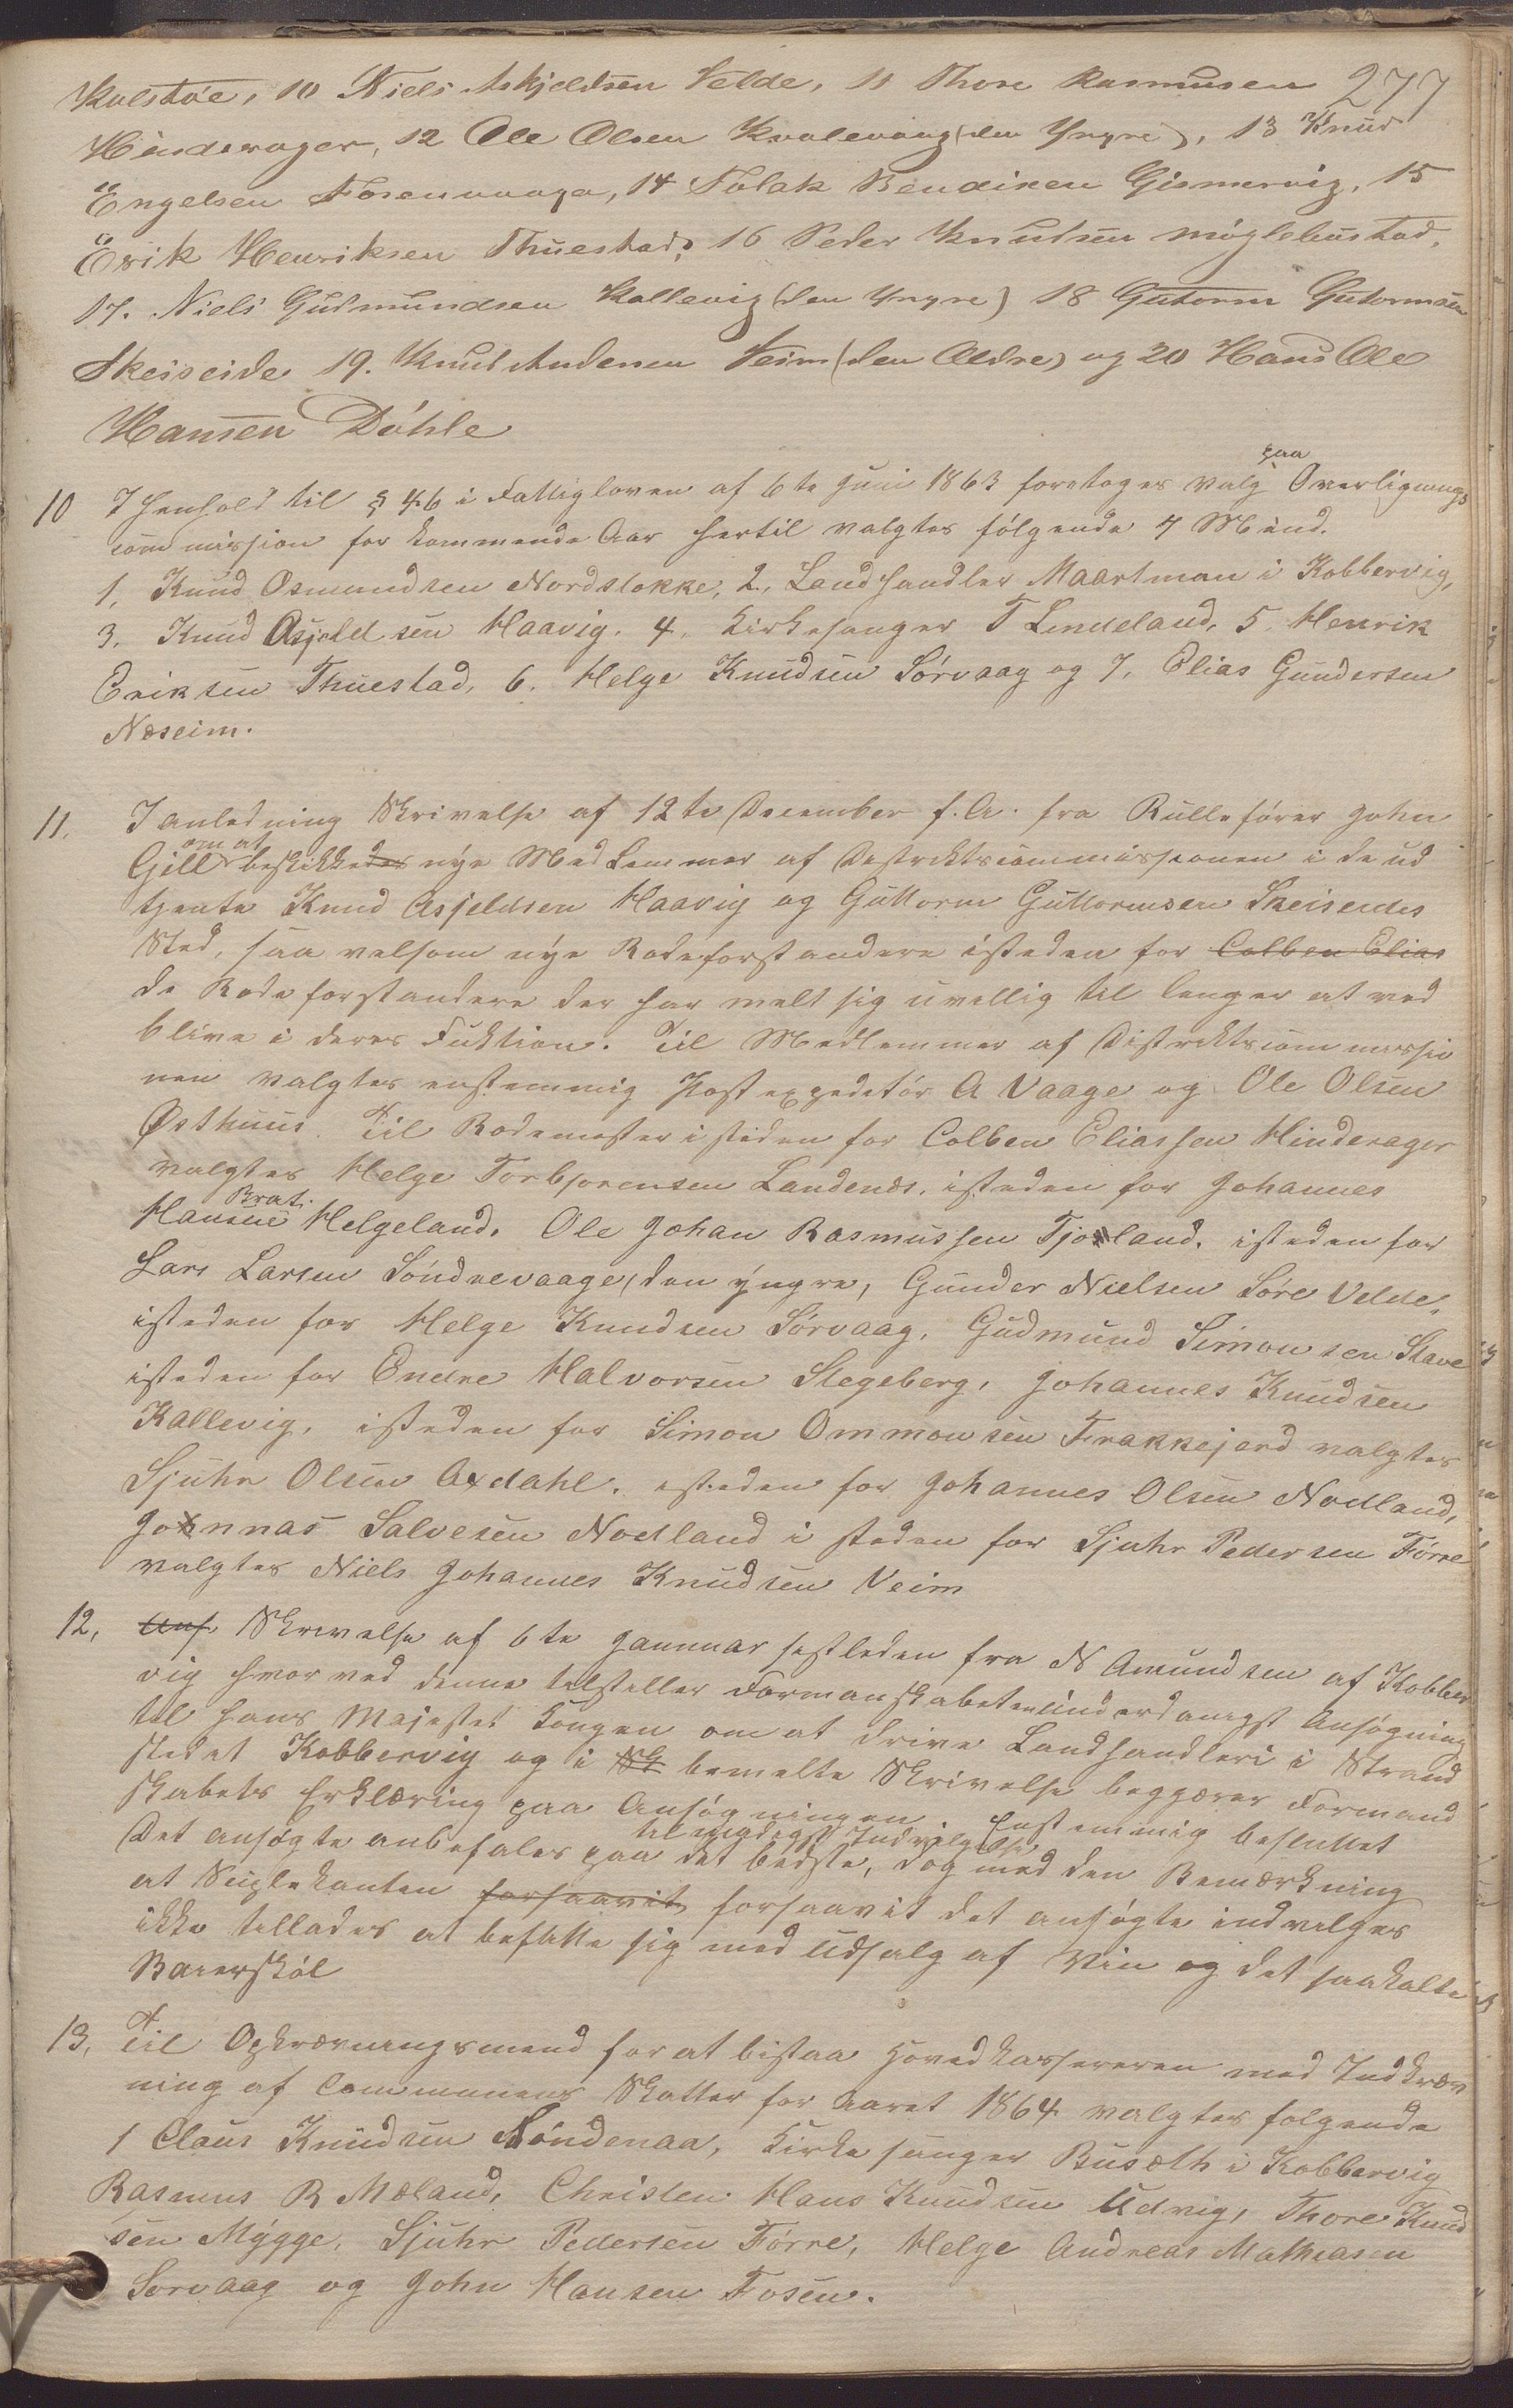 277
Kolstøe, 10 Niels Askjeldsen Velde, 11 Thore Rasmusen
Hinderager, 12 Ole Olsen Kvalevaag (den Yngre), 13 Knud
Engelsen Fosenvaage, 14 Tolak Bendixen Gismervig, 15
Erik Henriksen Thuestad, 16 Peder Knutsen Møglebustad,
17. Niels Gudmundsen Kallevig (den Yngre) 18 Gutorm Gutormsen
Skeiseide 19. Knut Andersen Veim (den Ældre) og 20 Hans Ole
Hansen Døhle
10 I Henhold til § 46 i Fattigloven af 6te Juni 1863 foretoges Valg paa Overlignings
commission for kommende Aar hertil valgtes følgende 7 Mænd.
1, Knud Osmundsen Nordstokke, 2., Landhandler Maartman i Kobbervig,
3, Knud Asjeldsen Haavig. 4, Kirkesanger T Lindeland, 5. Henrik
Eriksen Thuestad, 6. Helge Knudsen Sørvaag og 7, Elias Gundersen
Næseim.
11. I anledning Skrivelse af 12te December f. A. fra Rullefører John
Gill om at beskikkedes nye Medlemmer af Distriktscommissionen i de ud
tjente Knud Asjeldsen Haavig og Guttorm Guttormsen Skeiseides
Sted, saa velsom nye Rodeforstandere isteden for Colben Elias
de Rodeforstandere der har meldt sig uvillig til længer at ved
blive i deres Fuktion. Til Medlemmer af Distriktscommissio
nen valgtes enstemmig Postexpeditør A Vaage og Ole Olsen
Østhuus. Til Rodemester isteden for Colben Eliassen Hinderager
valgtes Helge Torbjørensen Landenæs, isteden for Johannes
Hansen Brat. Helgeland, Ole Johan Rasmussen Tjosland, isteden for
Lars Larsen Søndrevaage, den yngre, Gunder Nielsen Søre Velde,
isteden for Helge Knudsen Sørvaag, Gudmund Simonsen Stave
isteden for Endre Halvorsen Stegeberg, Johannes Knudsen
Kallevig, isteden for Simon Ommonsen Frakkejerd valgtes
Sjuhr Olsen Axdahl, isteden for Johannes Olsen Nodland,
Johnnas Salvesen Nodland i steden for Sjuhr Pedersen Førre
valgtes Niels Johannes Knudsen Veim
12, Anf. Skrivelse af 6te Januar sidstleden fra N Amundsen af Kobber
vig hvorved denne tilstiller Formanskabet en underdanigst Ansøgning
til Hans Majestet Kongen om at drive Landhandleri i Strand
stedet Kobbervig og i Sk bemelte Skrivelse begjærer Formand
skabets Erklæring paa Ansøgningen Enstemmig besluttet
Det ansøgte anbefales paa det bedste, til naadigst Indvilgelse dog med den Bemærkning
at Suplekanten forsaavit forsaavit det ansøgte indvilges
ikke tillades at befatte sig med Udsalg af Viin og det saakalte
Baierskøl
13, Til Opkrævningsmænd for at bistaa Hovedkassereren med Indkræv
ning af Communens Skatter for Aaret 1864 valgtes følgende
1 Claus Knudsen Søndenaa, Kirkesanger Busæth i Kobbervig
Rasmus R Mæland, Christen Hans Knudsen Udvig, Thore Knud
sen Mýgge, Sjuhr Pedersen Førre, Helge Andreas Mathiasen
Sørvaag og John Hansen Fosen.